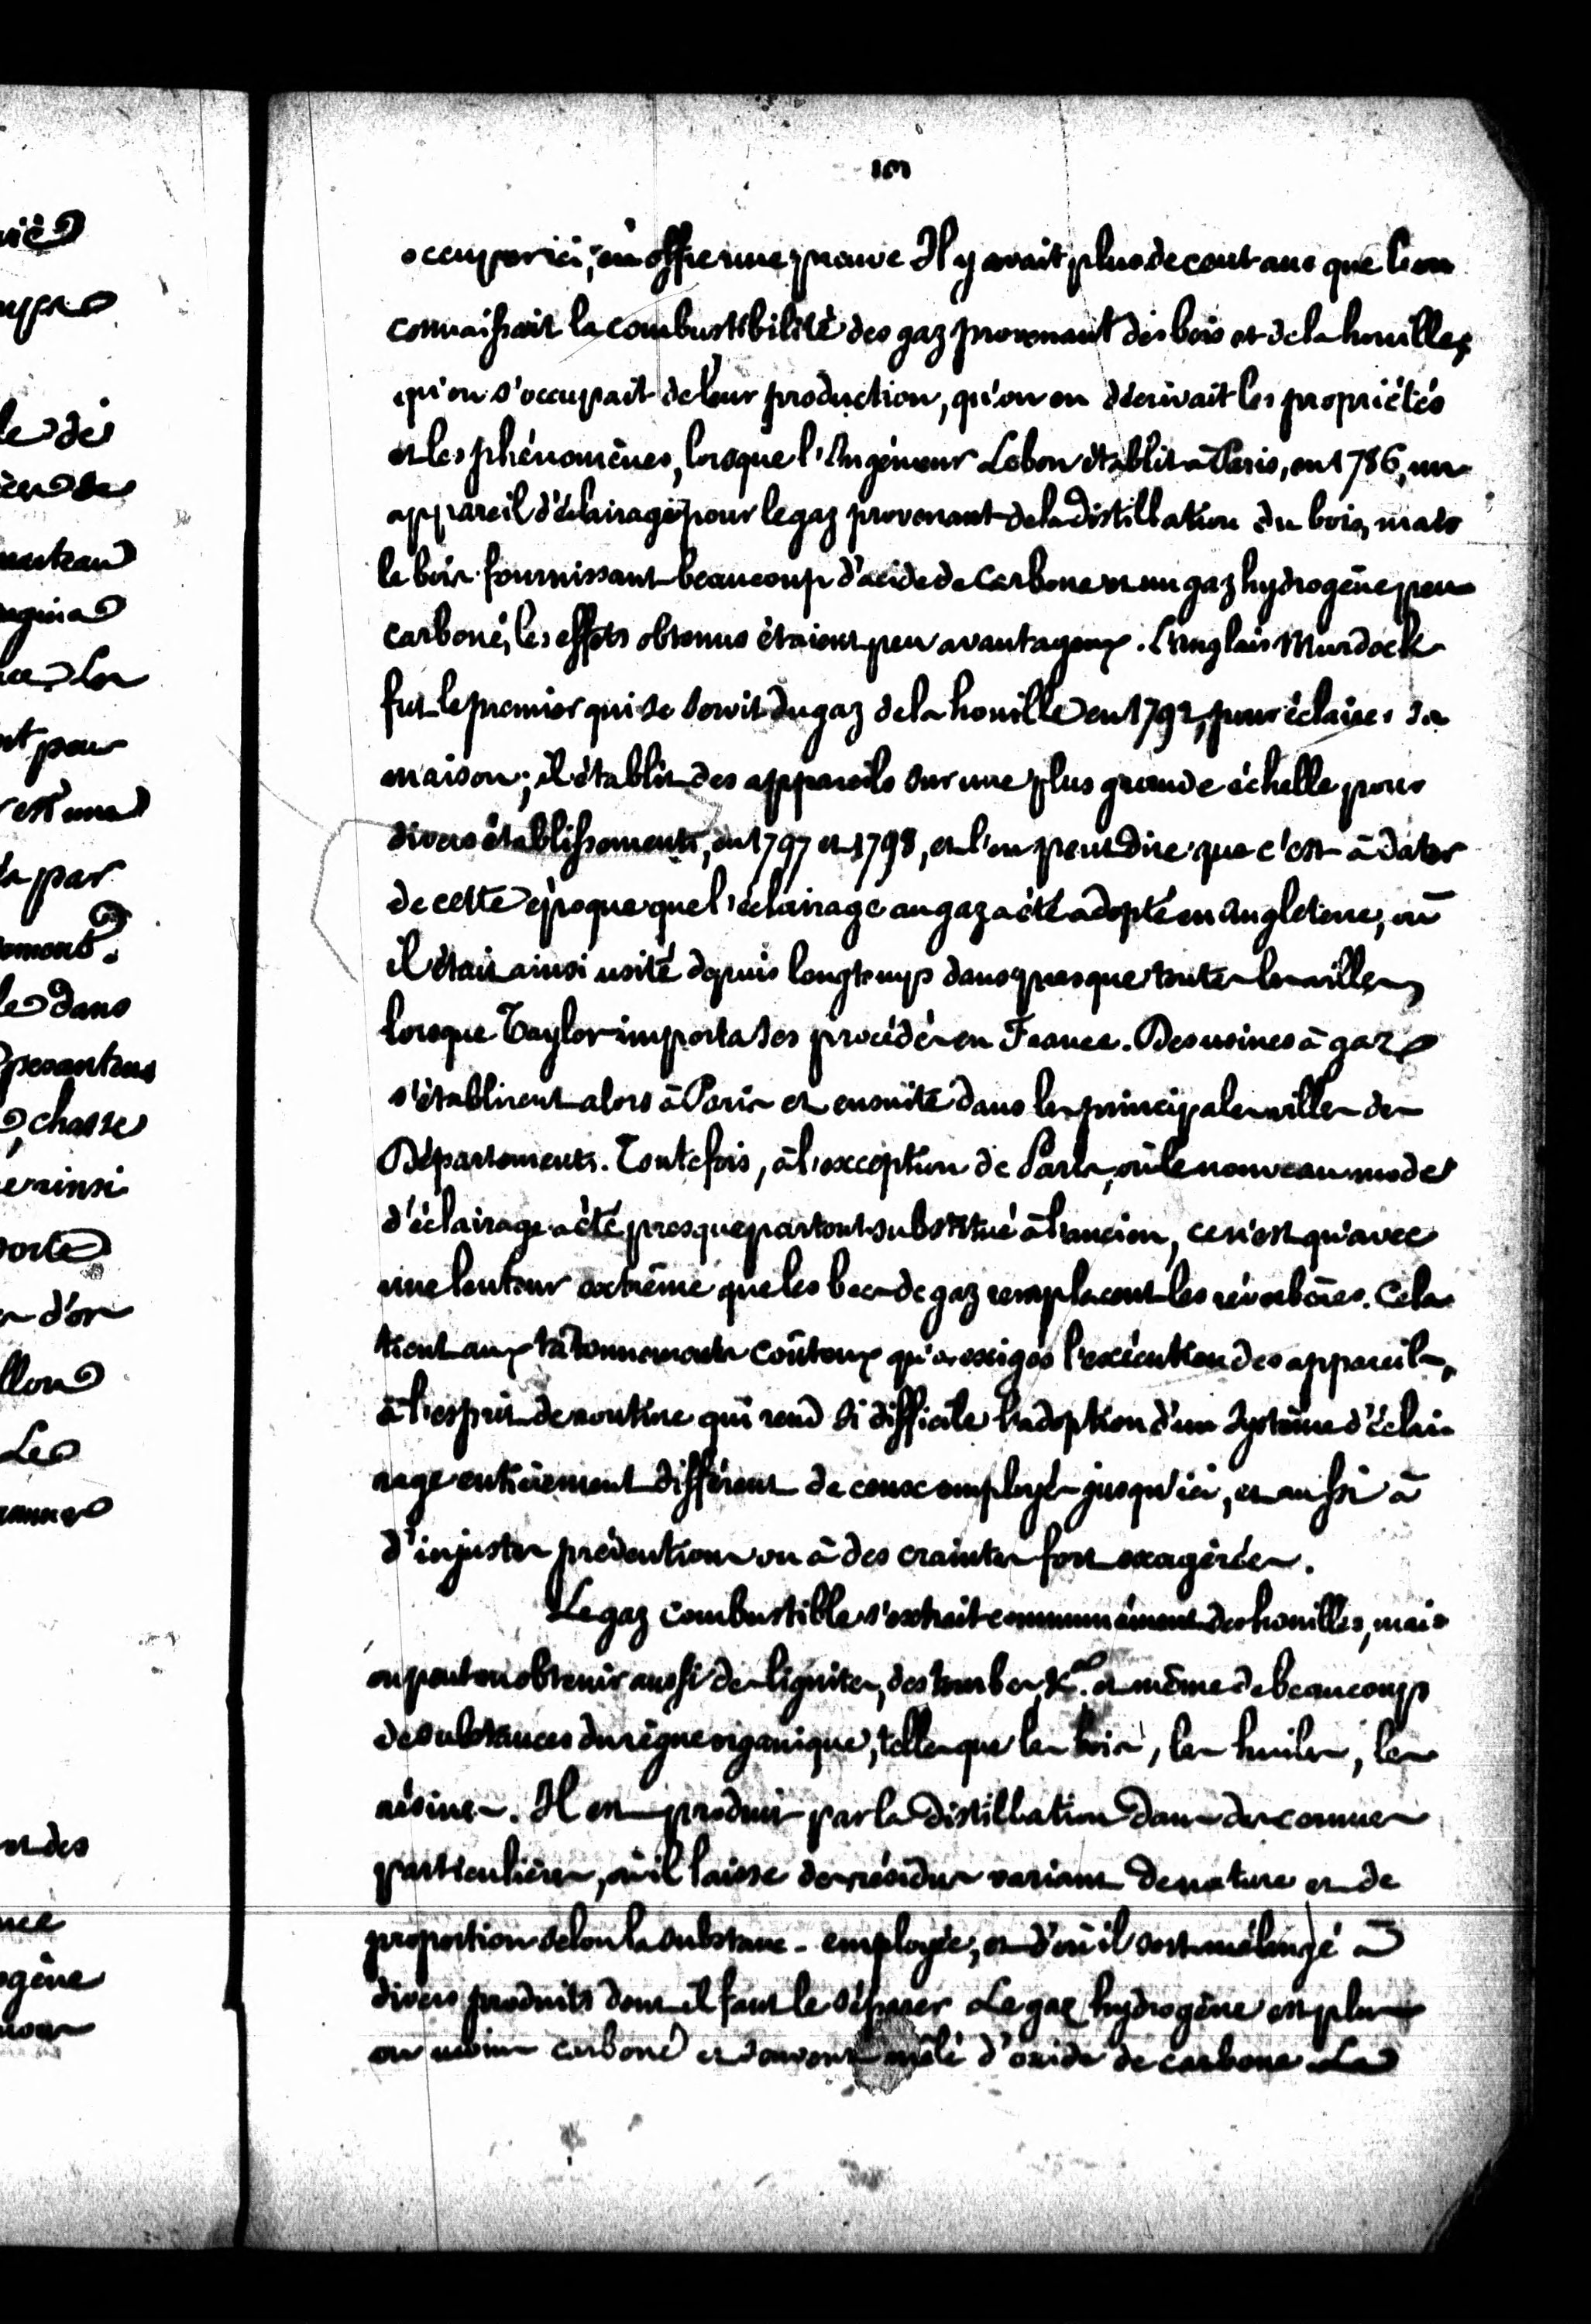 occuper ici, en offre une preuve Il y avait plus de cent ans que l'on
connaissait la combustibilité des gaz provenant des bois et de la houille,
qu'on s'occupait de leur production, qu'on en décrivait les propriétés
et les phénomènes, lorsque l'Ingénieur Lebon établit à Paris, en 1786, un
appareil d'éclairage pour le gaz provenant de la distillation du bois, mais
le bois fournissant beaucoup d'acide de Carbone et un gaz hydrogène peu
carboné, les effets obtenus étaient peu avantageux. L'anglais Murdock
fut le premier qui se servit du gaz de la houille en 1792, pour éclairer sa
maison; il établit des appareils sur une plus grande échelle pour
divers établissements, en 1797 et 1798, et l'on peut dire que c'est à dater
de cette époque que l'éclairage au gaz a été adopté en Angleterre, où
il était ainsi usité depuis longtemps dans presque toutes les villes
lorsque Taylor importa ses procédés en France. Des usines à gaz
s'établirent alors à Paris et ensuite dans les principales villes des
Départements. Toutefois, à l'exception de Paris, où le nouveau mode
d'éclairage a été presque partout substitué à l'ancien, ce n'est qu'avec
une lenteur extrême que les becs de gaz remplacent les réverbères. Cela
tient aux tâtonnements coûteux qu'a exigés l'exécution des appareils,
à l'esprit de routine qui rend si difficile l'adoption d'un système d'éclai-
rage entièrement différent de ceux employés jusqu'ici, et aussi à
d'injustes préventions ou à des craintes fort exagérées.
Le gaz combustible s'extrait communément des houilles, mais
on peut en obtenir aussi des lignites, des tourbes &ca. et même de beaucoup
de substances du règne organique, telles que les bois, les huiles, les
résines. Il est produit par la distillation dans des cornues
particulières, où il laisse des résidus variant de nature et de
proportion selon la substance employée, et d'où il sort mélangé à
divers produits dont il faut le séparer Le gaz hydrogène est plus
ou moins carboné et souvent mêlé d'oxide de carbone La